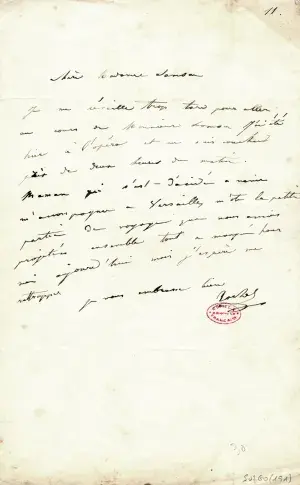 11.
Chère Madame Samson
Je me réveille trop tard pour aller
au cours de Monsieur Samson j'ai été
hier à l'opéra et me suis couchée
près de deux heures du matin.
Maman qui s'est décidée a venir
m'accompagner a Versailles la petite
partie de voyage que nous avions
projetée ensemble tout a manqué pour
moi aujourd'hui mais j'espère me
rattrapper je vous embrasse bien
Rachel
COMÉDIE
FRANÇAISE